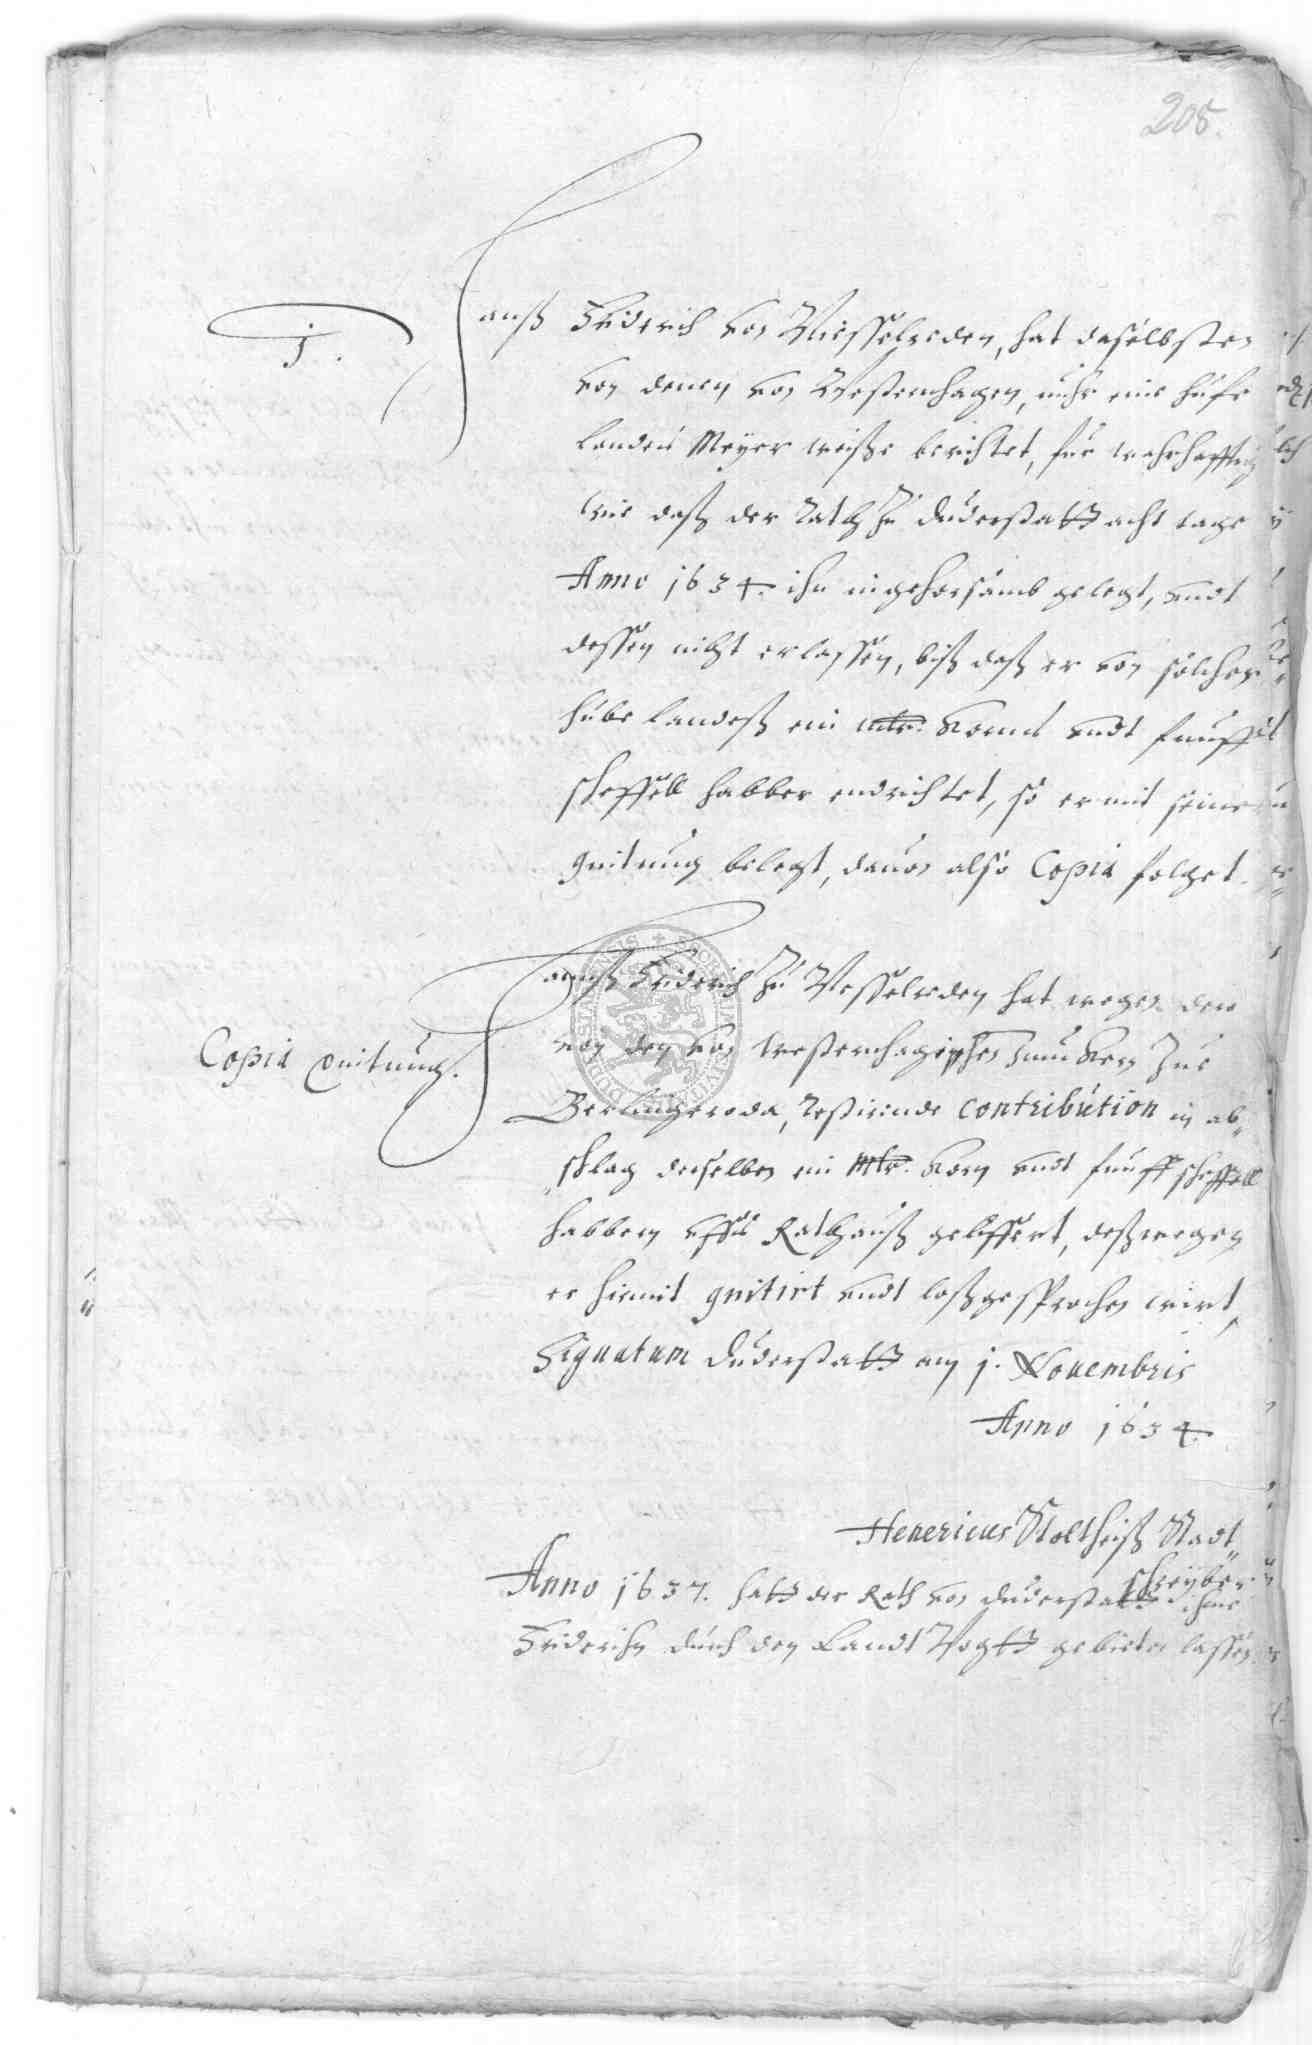 205.
1.
Hanß Friderich von Wesselreden, hat daselbsten
von denen von Westernhagen, nuhr eine hufe
landeß Meyer weiße berichtet, fur wahrhafftig
wie daß der Rath zu Duderstatt acht tage
Anno 1634. ihn in gehorsamb gelegt, undt
dessen nicht erlassen, biß daß er von solcher
hube landeß ein mltr. Korn undt funff
scheffell habber endrichtet, so er mit seiner
quitung belegt, davon also Copia folget.
Copia Quitung.
Hannß Friderich zu Wesselreden hat wegen der
von den von Westernhagischen Junckern zue
Berlingeroda, Restirende contribution in ab„
„schlag derselben ein Mltr. Korn undt funff scheffell
habbern uffs Rathhauß geliffert, deßwegen
er hiemit quitirt undt loßgesprochen wirt,
Signatum Duderstatt am 1. Novembris
Anno 1634.
Henericus Stoltheiß Stadt
schreyber.
Anno 1637. hatt der Rath von Duderstatt ihme
Friderichn durch den Landt Vogtt gebieten lassen